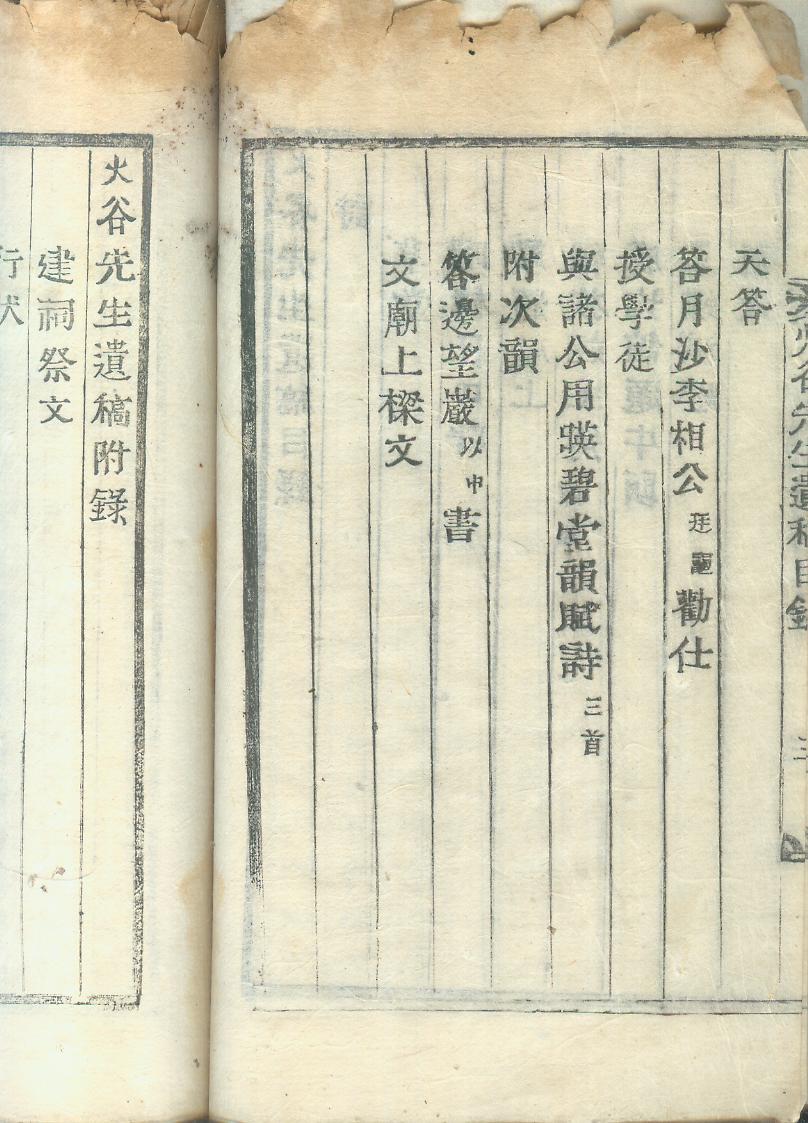 火谷先生遺稿目錄
天答
答月沙李相公廷龜勸仕
授學徒
與諸公用暎碧堂韻賦詩三首
附次韻
答邊望巖以中書
文廟上樑文
火谷先生遺稿附錄
建祠祭文
行狀